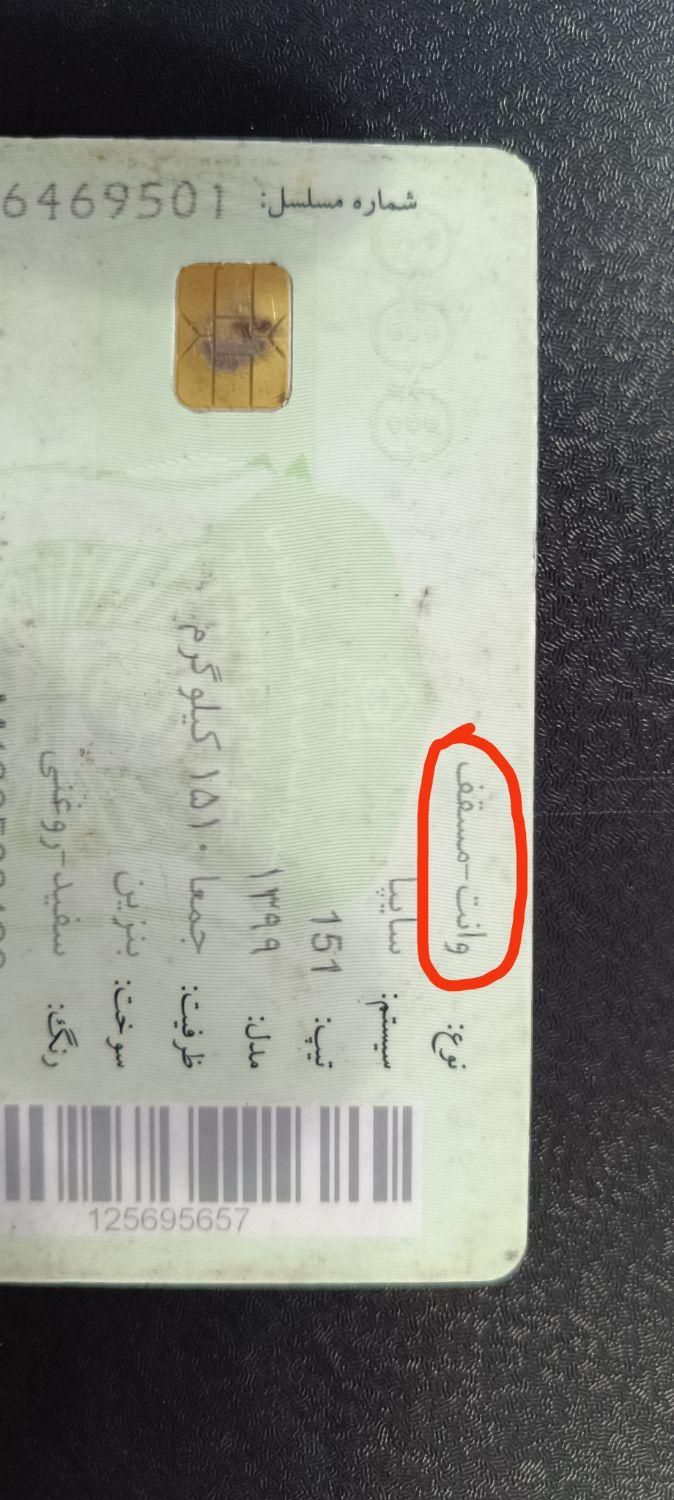 شماره مسلسل: 6469501
نوع: وانت-مسقف
سیستم: سایپا
تیپ: 151
مدل: ۱۳۹۹
ظرفیت: جمعا ۱۵۱۰ کیلوگرم
سوخت: بنزین
رنگ: سفید-روغنی
125695657